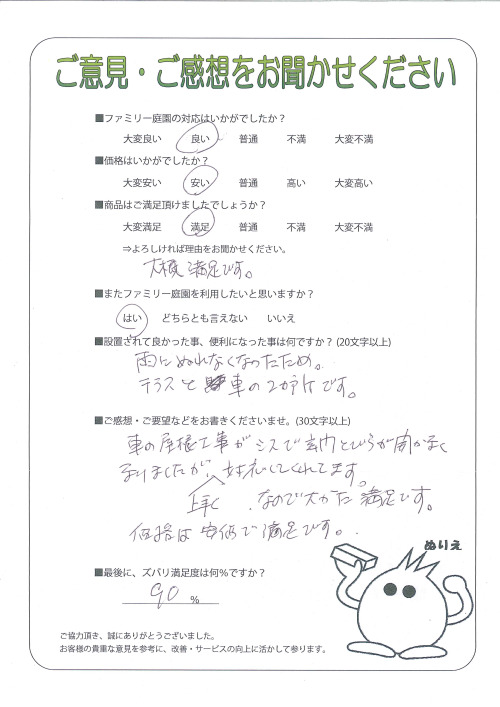 ご意見・ご感想をお聞かせください
■ファミリー庭園の対応はいかがでしたか？
大変良い 良い 普通 不満 大変不満
■価格はいかがでしたか？
大変安い 安い 普通 高い 大変高い
■商品はご満足頂けましたでしょうか？
大変満足 満足 普通 不満 大変不満
⇒よろしければ理由をお聞かせください。
大様 満足です。
■またファミリー庭園を利用したいと思いますか？
はい どちらとも言えない いいえ
■設置されて良かった事、便利になった事は何ですか？(20文字以上)
雨にぬれなくなったため。
テラスと 車の2か所です。
■ご感想・ご要望などをお書きくださいませ。(30文字以上)
車の屋根工事がミスで玄関とびらが開かなく
なりましたが、対応してくれてます。
上手く なので大かた満足です。
価格は安価で満足です。
ぬりえ
■最後に、ズバリ満足度は何％ですか？
90 ％
ご協力頂き、誠にありがとうございました。
お客様の貴重な意見を参考に、改善・サービスの向上に活かして参ります。